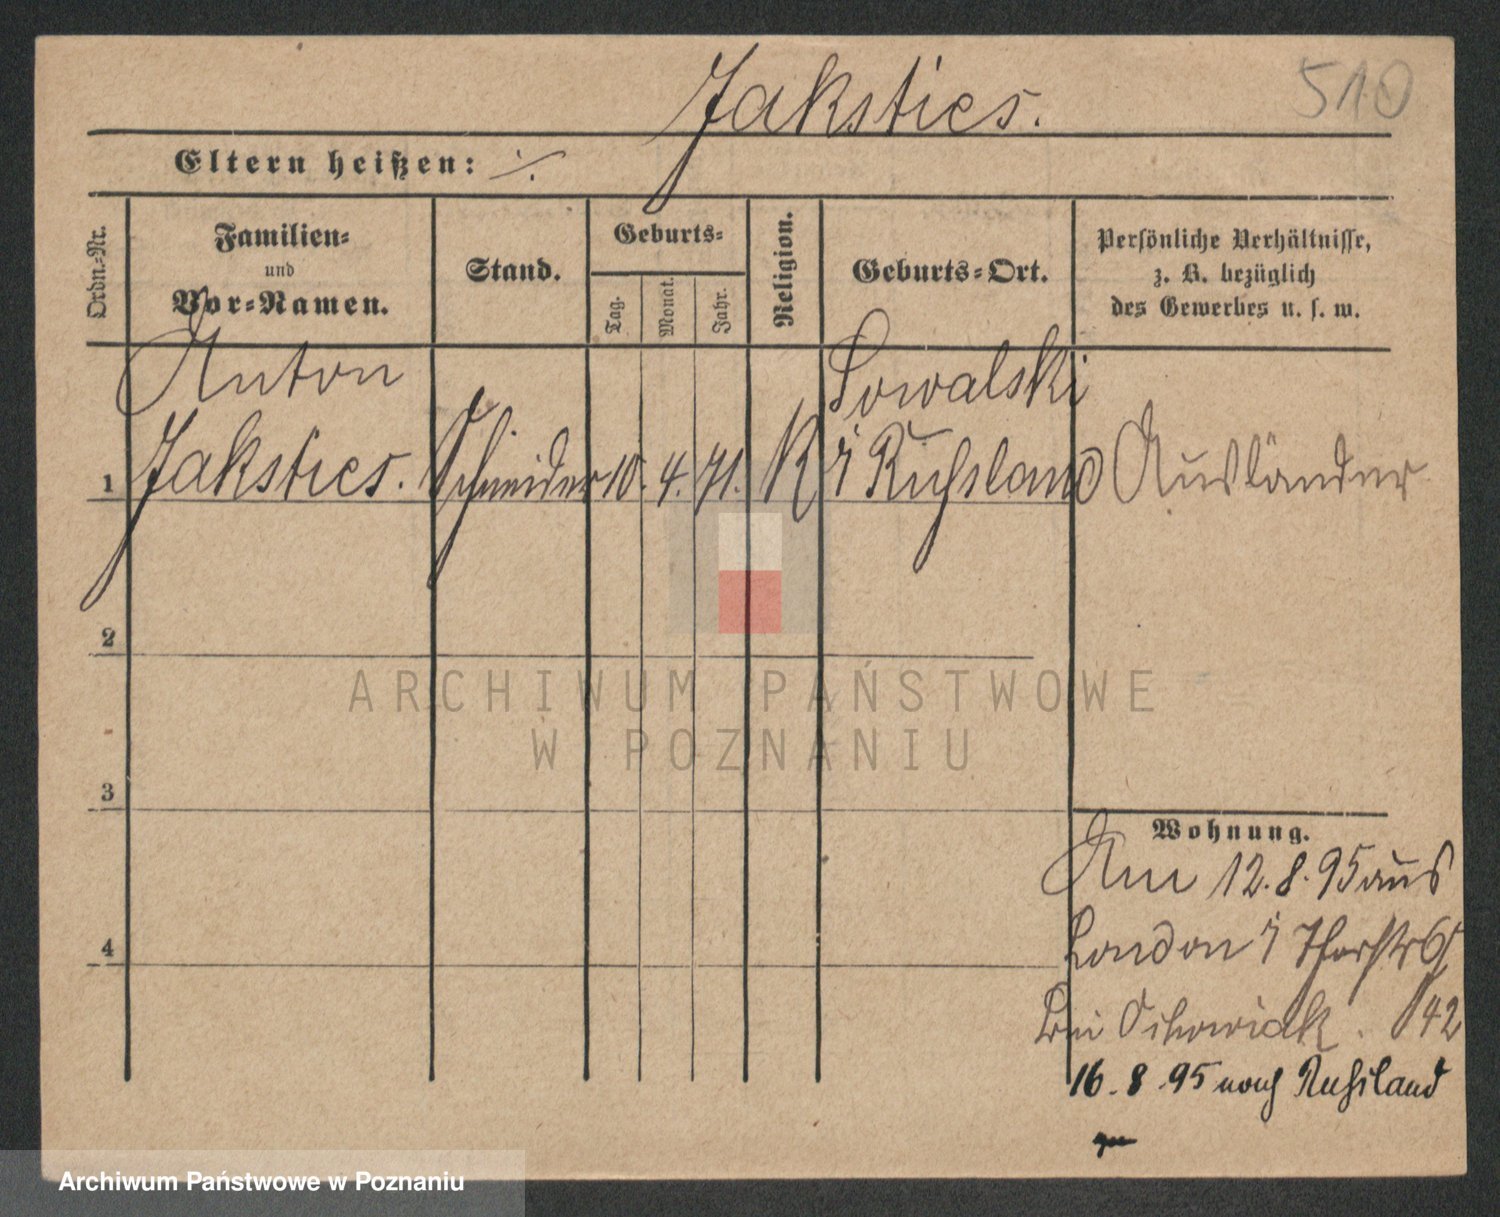 Jaksties.
510
Eltern heißen: ./.
Ordn.-Nr.
Familien-
und
Vor-Namen.
Stand.
Geburts-
Tag.
Monat.
Jahr.
Religion.
Geburts-Ort.
Persönliche Verhältnisse,
z. B. bezüglich
des Gewerbes u. s. w.
Anton
Jaksties.
Schneider
10. 4. 71.
K
Sowalski
i Rußland
Ausländer
1
2
3
4
Wohnung.
Am 12.8.95 aus
London i
bei
42
16.8.95 nach Rußland
ARCHIWUM PAŃSTWOWE
W POZNANIU
Archiwum Państwowe w Poznaniu